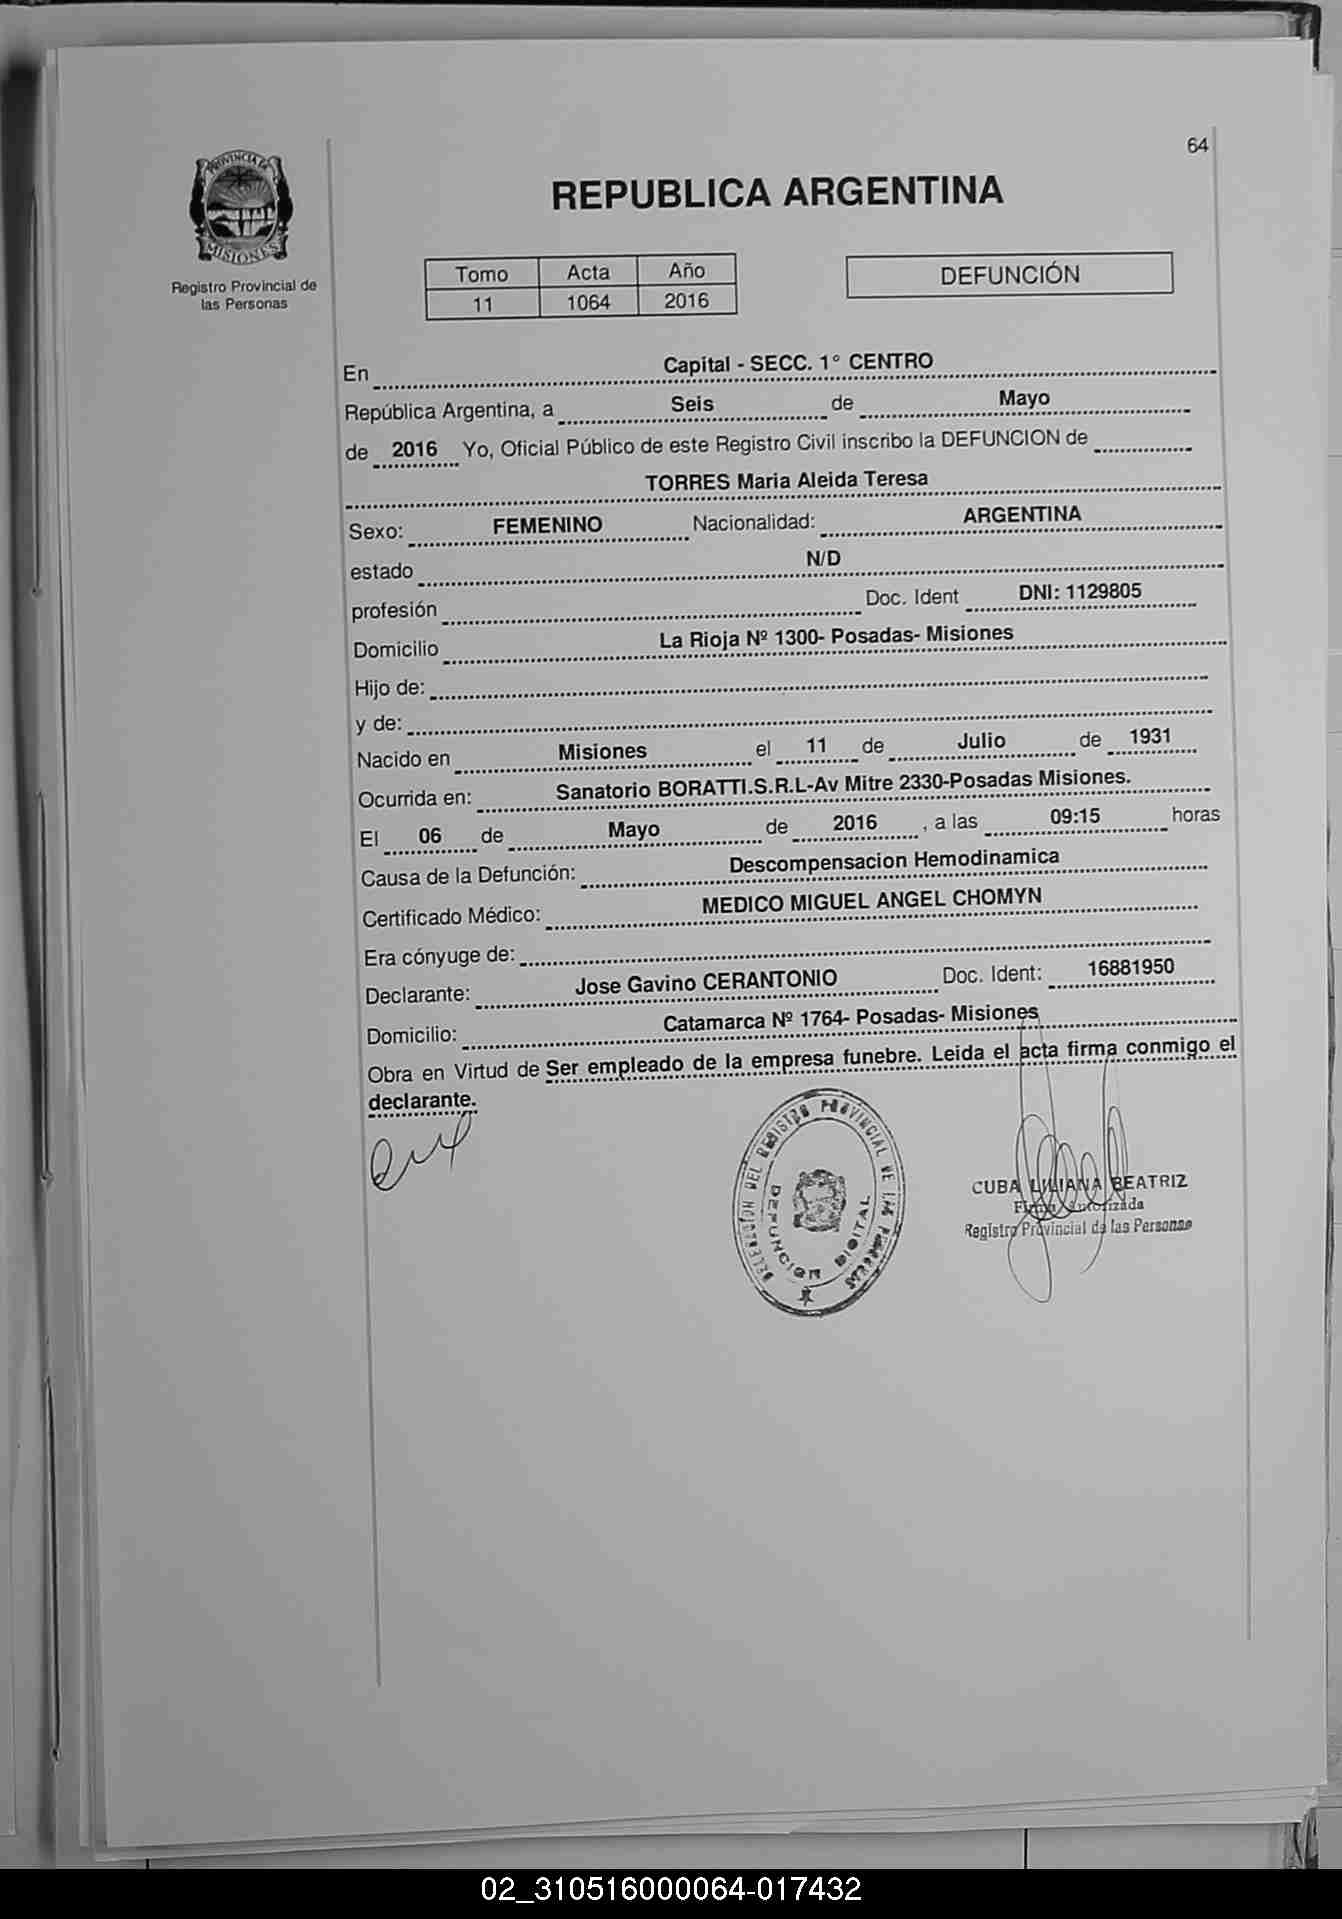 64
PROVINCIA DE
MISIONES
Registro Provincial de
las Personas
REPUBLICA ARGENTINA
Tomo Acta Año
11 1064 2016
DEFUNCIÓN
En Capital - SECC. 1° CENTRO
República Argentina, a Seis de Mayo
de 2016 Yo, Oficial Público de este Registro Civil inscribo la DEFUNCION de
TORRES Maria Aleida Teresa
Sexo: FEMENINO Nacionalidad: ARGENTINA
estado N/D
profesión Doc. Ident DNI: 1129805
Domicilio La Rioja Nº 1300- Posadas- Misiones
Hijo de:
y de:
Nacido en Misiones el 11 de Julio de 1931
Ocurrida en: Sanatorio BORATTI.S.R.L-Av Mitre 2330-Posadas Misiones.
El 06 de Mayo de 2016 , a las 09:15 horas
Causa de la Defunción: Descompensacion Hemodinamica
Certificado Médico: MEDICO MIGUEL ANGEL CHOMYN
Era cónyuge de:
Declarante: Jose Gavino CERANTONIO Doc. Ident: 16881950
Domicilio: Catamarca Nº 1764- Posadas- Misiones
Obra en Virtud de Ser empleado de la empresa funebre. Leida el acta firma conmigo el
declarante.
DELEGACION DEL REGISTRO PROVINCIAL DE LAS PERSONAS
DEFUNCION DIGITAL
CUBA LILIANA BEATRIZ
Firma Autorizada
Registro Provincial de las Personas
02_310516000064-017432